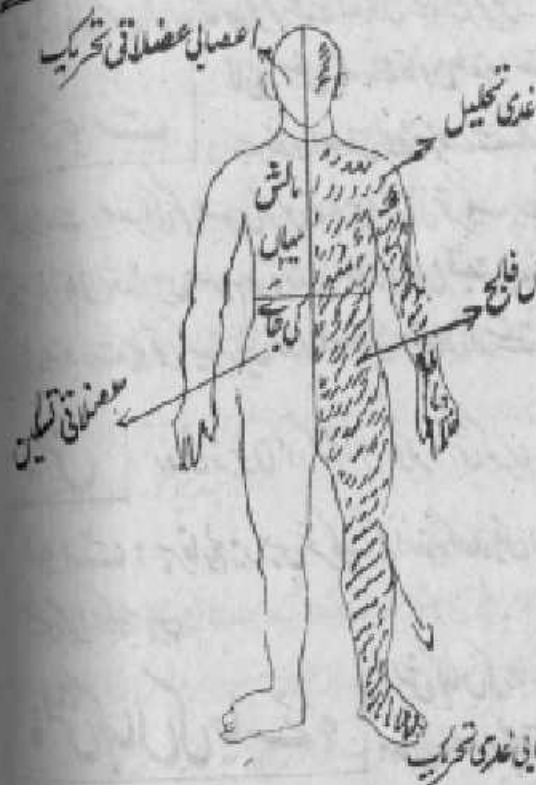 اعصابی عضلاتی تحریک
غدی تحلیل
مالش
یہاں
کی جائے
فالج
عضلاتی تسکین
غدی تحریک